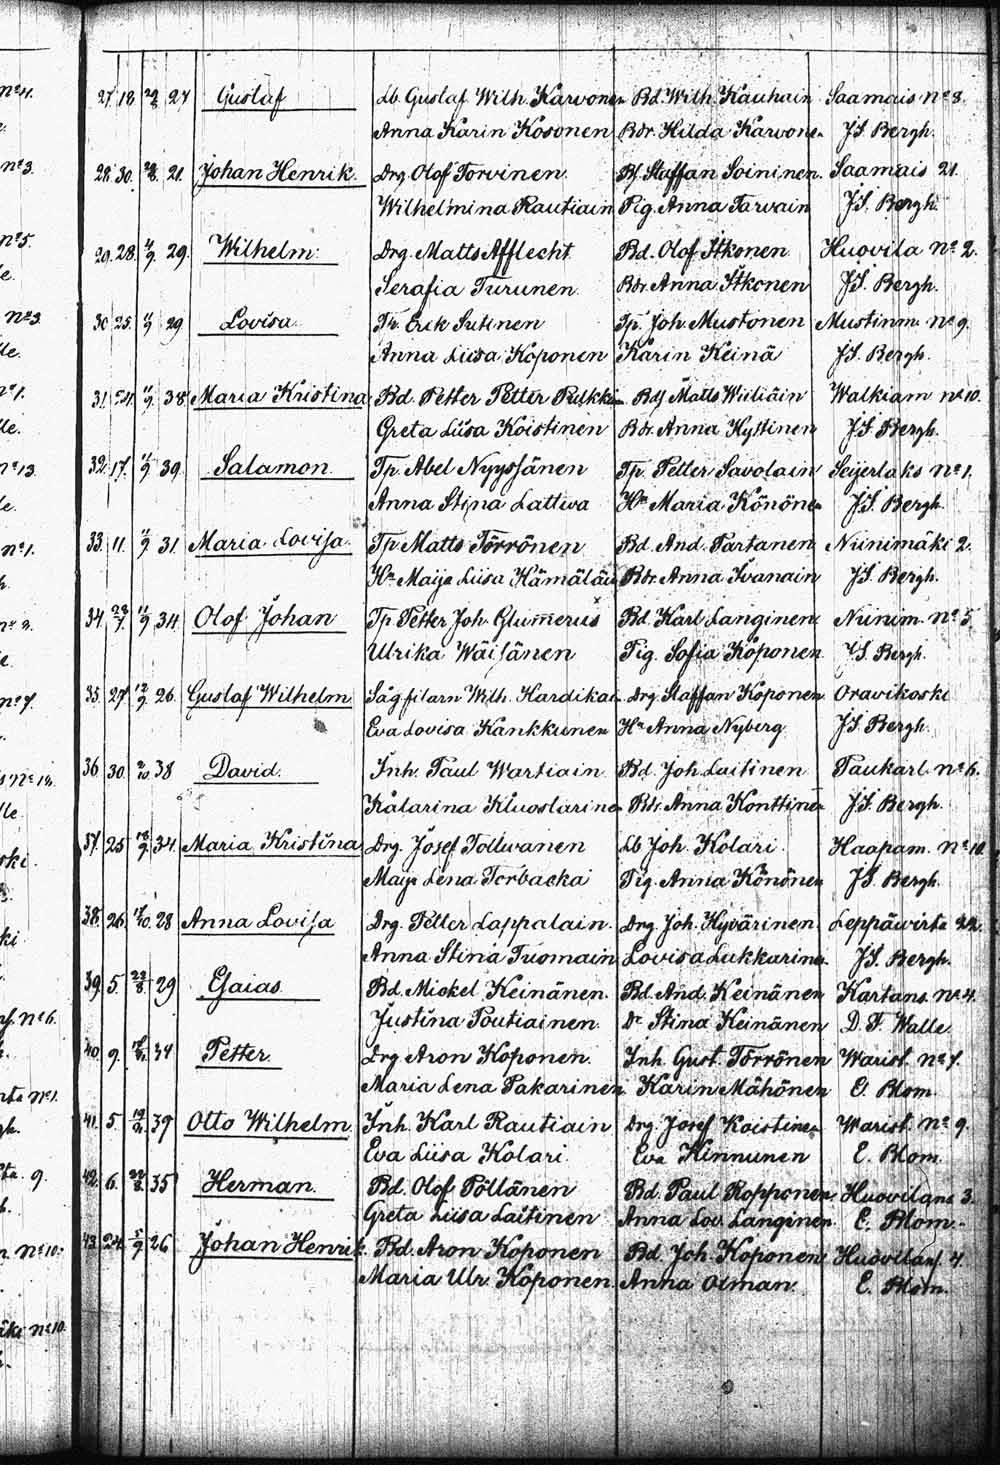 27. 18. 22/8 27 Gustaf Lb. Gustaf Wilh. Karvonen Bd. Wilh. Kauhain Saamais No 8.
Anna Karin Kosonen Bdr. Hilda Karvonen J.S. Bergh.
28. 30. 21. Johan Henrik. Drg. Olof Torvinen Bf. Staffan Soininen. Saamais 21.
Wilhelmina Rautiain Pig. Anna Tarvain J.S. Bergh.
29. 28. 4/9. 29. Wilhelm. Drg. Matts Afflecht Bd. Olof Itkonen Huovila No 2.
Serafia Turunen Bdr. Anna Itkonen J.S. Bergh.
30 25. 11/9 29 Lovisa. Tr. Erik Sutinen Tp. Joh. Mustonen Mustinm. No 9.
Anna Liisa Koponen Karin Keinä J.S. Bergh.
31. 24. 11/9. 38. Maria Kristina Bd. Petter Petter Pulkki Bdf Matts Wiiliäin Walkiam No 10.
Greta Liisa Koistinen Bdr. Anna Hyttinen J.S. Bergh.
32. 17. 11/9 39. Salamon. Tp. Abel Nyyssänen Tp. Petter Savolain Seijerlaks No 1.
Anna Stina Lattwa Hu Maria Könönen J.S. Bergh.
33. 11. 11/9 31. Maria Lovisa. Tp Matts Törrönen Bd. And. Partanen Niinimäki 2.
Hu Maija Liisa Hämäläi Bdr. Anna Ivanain J.S. Bergh.
34. 28/7. 11/9 34. Olof Johan Tp. Petter Joh. Glumerus Bd. Karl Langinen Niinim. No 5
Ulrika Wäisänen Pig. Sofia Koponen J.S. Bergh.
35. 27. 12/9. 26. Gustaf Wilhelm Sågfilarn Wilh. Hardikai Drg Staffan Koponen Oravikoski
Eva Lovisa Kankkunen Hu Anna Nyberg J.S. Bergh.
36 30. 2/10. 38 David. Inh. Paul Wartiain Bd. Joh. Laitinen Paukarl. No 6.
Katarina Kluostarine Bdr. Anna Konttine J.S. Bergh.
37. 25 18/9. 34. Maria Kristina Drg. Josef Tolwanen Lb Joh. Kolari Haapam. No 10
Maija Lena Torbacka Pig. Anna Könönen J.S. Bergh.
38. 26. 28 Anna Lovisa Drg. Petter Lappalain. Drg. Joh. Hyvärinen Leppäwirta 22.
Anna Stina Tuomain Lovisa Lukkarine. J.S. Bergh.
39. 5. 22/8. 29 Esaias Bd. Mickel Keinänen. Bd. And. Keinänen Kartans. No 4.
Justina Poutiainen. Dr Stina Keinänen D. F. Walle
40. 9. 34 Petter. Drg Aron Koponen. Inh. Gust. Törrönen Warist. No 7.
Maria Lena Pakarinen. Karin Mähönen E. Blom.
41. 5. 39 Otto Wilhelm Inh. Karl Rautiain Drg. Josef Koistinen Warist. No 9.
Eva Liisa Kolari. Eva Kinnunen E. Blom.
42. 6. 22/8. 35 Herman. Bd. Olof Pöllänen Bd. Paul Ropponen Huovilans 3.
Greta Liisa Laitinen Anna Lov. Langinen E. Blom.
43. 24. 5/9. 26 Johan Henrik. Bd. Aron Koponen Bd. Joh. Koponen Huovilans. 4.
Maria Ulr. Koponen. Anna Orman. E. Blom.